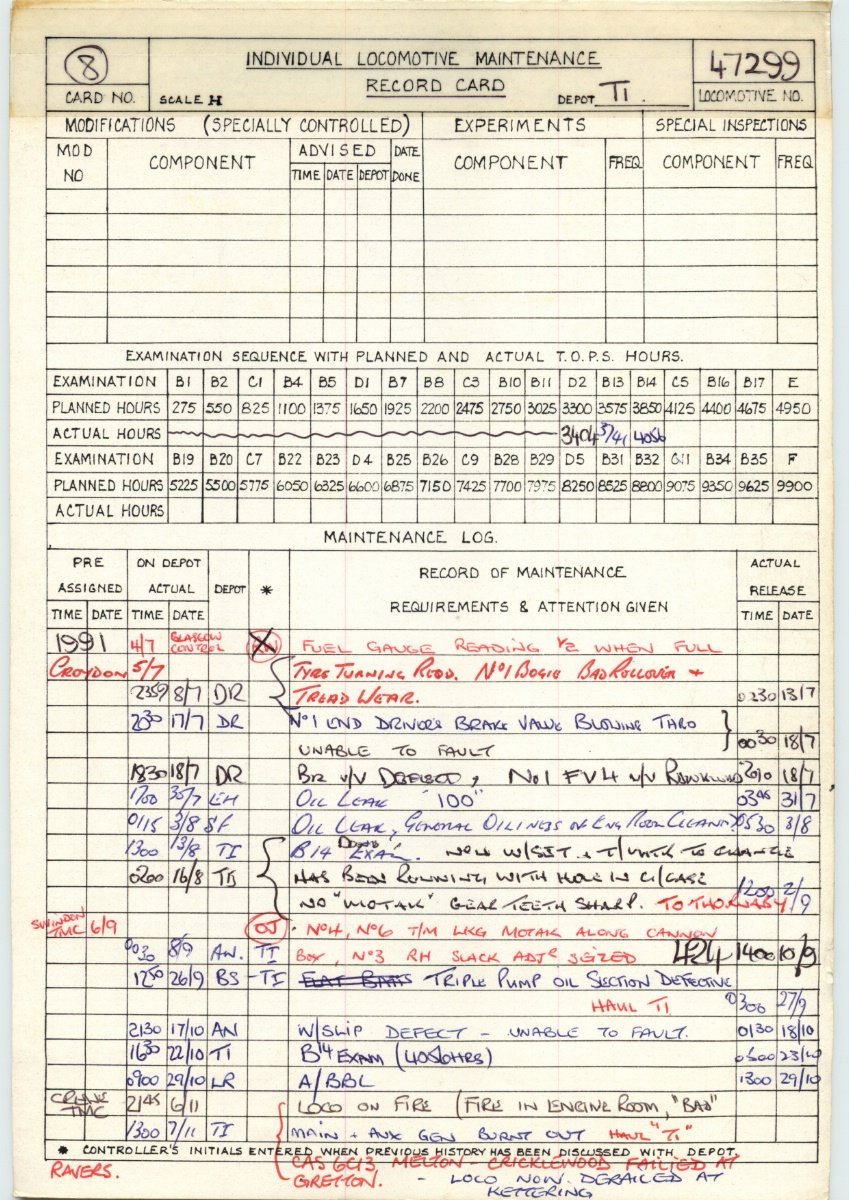 8 INDIVIDUAL LOCOMOTIVE MAINTENANCE 47299
CARD NO. SCALE H RECORD CARD DEPOT TI. LOCOMOTIVE NO.
MODIFICATIONS (SPECIALLY CONTROLLED) EXPERIMENTS SPECIAL INSPECTIONS
MOD NO COMPONENT ADVISED DATE DONE COMPONENT FREQ. COMPONENT FREQ
TIME DATE DEPOT
EXAMINATION SEQUENCE WITH PLANNED AND ACTUAL T.O.P.S. HOURS.
EXAMINATION B1 B2 C1 B4 B5 D1 B7 B8 C3 B10 B11 D2 B13 B14 C5 B16 B17 E
PLANNED HOURS 275 550 825 1100 1375 1650 1925 2200 2475 2750 3025 3300 3575 3850 4125 4400 4675 4950
ACTUAL HOURS 3404 3741 4056
EXAMINATION B19 B20 C7 B22 B23 D4 B25 B26 C9 B28 B29 D5 B31 B32 C11 B34 B35 F
PLANNED HOURS 5225 5500 5775 6050 6325 6600 6875 7150 7425 7700 7975 8250 8525 8800 9075 9350 9625 9900
ACTUAL HOURS
MAINTENANCE LOG.
PRE ASSIGNED ON DEPOT ACTUAL DEPOT * RECORD OF MAINTENANCE ACTUAL RELEASE
TIME DATE TIME DATE REQUIREMENTS & ATTENTION GIVEN TIME DATE
1991 4/7 GLASGOW CONTROL FUEL GAUGE READING 1/2 WHEN FULL
CROYDON 5/7 TYRE TURNING REQD. No1 BOGIE BAD ROLLOVER +
2359 8/7 DR TREAD WEAR. 0230 13/7
2030 17/7 DR No1 END DRIVERS BRAKE VALVE BLOWING THRO
UNABLE TO FAULT 0030 18/7
1830 18/7 DR No1 FV4 18/7
1700 30/7 EH OIL LEAK "100" 0345 31/7
0115 3/8 SF OIL LEAK, GENERAL OILINESS OF ENG ROOM 0530 3/8
1300 13/8 TI B14 EXAM. TO CHANGE
0200 16/8 HAS BEEN RUNNING WITH HOLE IN C/CASE
NO "MOTAK" GEAR TEETH SHARP. TO THORNABY 1200 2/9
SWINDON TMC 6/9 OJ No4, No6 T/M LKG MOTAK ALONG CANNON
0030 8/9 AN. TI BOX, No3 RH SLACK ADJR SEIZED 424 1400 10/9
1250 26/9 BS - TI FLAT BATTS TRIPLE PUMP OIL SECTION DEFECTIVE
HAUL TI 0300 27/9
2130 17/10 AN W/SLIP DEFECT - UNABLE TO FAULT. 0130 18/10
1630 22/10 TI B14 EXAM 23/10
0900 29/10 LR A/BBL 1300 29/10
CREWE TMC 2145 6/11 LOCO ON FIRE (FIRE IN ENGINE ROOM, "BAD"
1300 7/11 TI MAIN + AUX GEN BURNT OUT HAUL "TI"
* CONTROLLER'S INITIALS ENTERED WHEN PREVIOUS HISTORY HAS BEEN DISCUSSED WITH DEPOT.
RAVERS. CAS 6C13 MELTON - CRICKLEWOOD FAILED AT
GRETTON. - LOCO NOW DERAILED AT
KETTERING